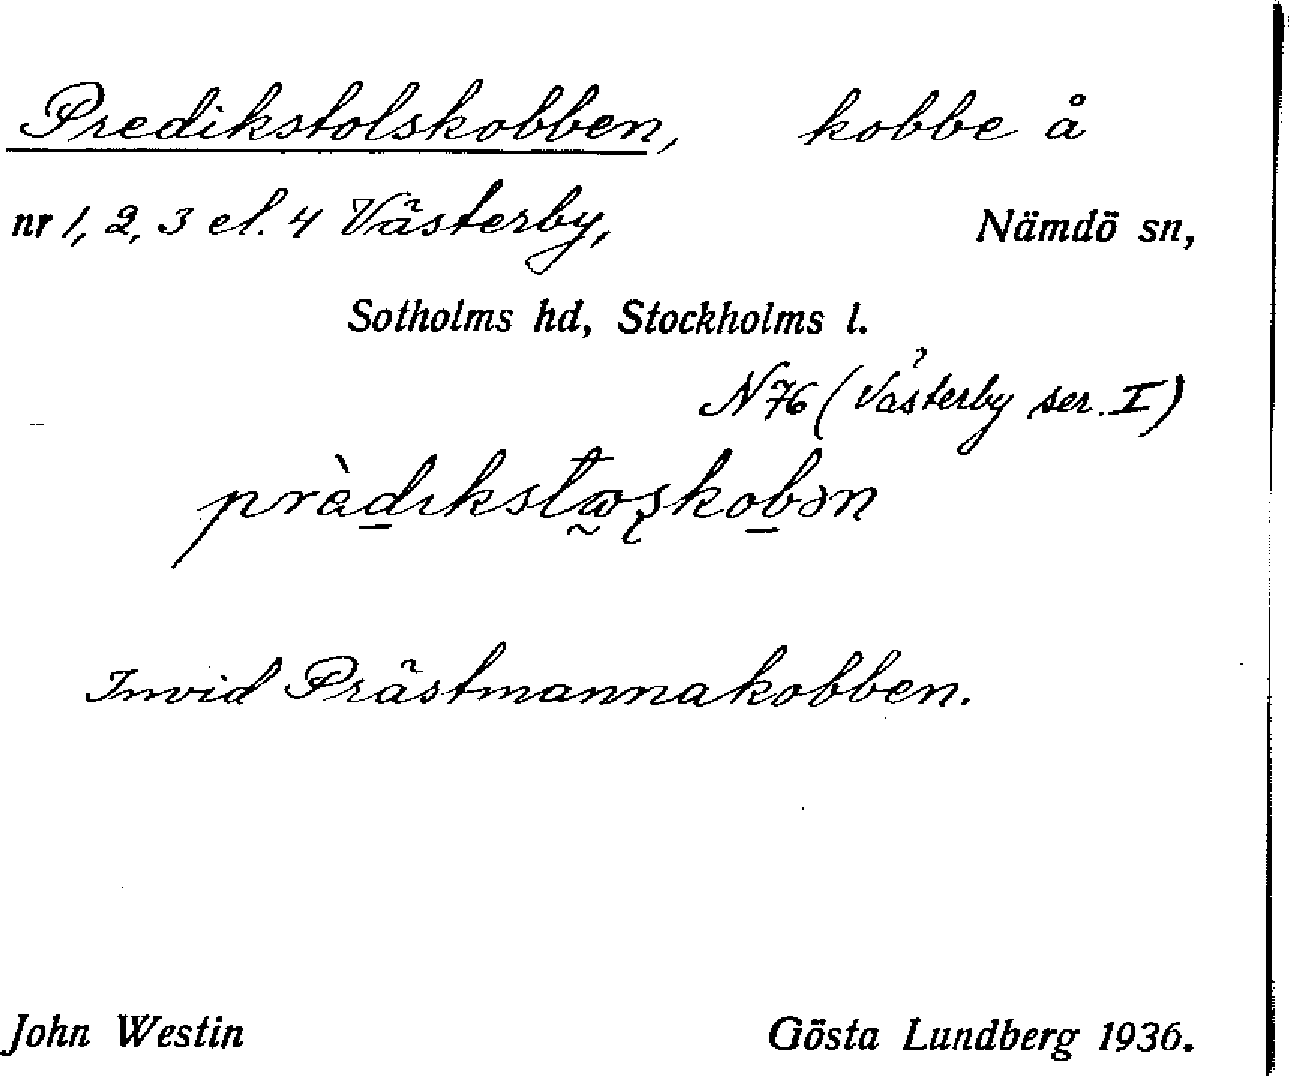 Predikstolskobben, kobbe å
nr 1, 2, 3 el. 4 Västerby, Nämdö sn,
Sotholms hd, Stockholms l.
N 76 (Västerby ser. I)
Invid Prästmannakobben.
John Westin Gösta Lundberg 1936.